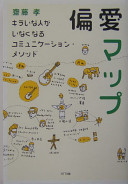 偏愛マップ
齋藤 孝
キライな人が
いなくなる
コミュニケーション・
メソッド